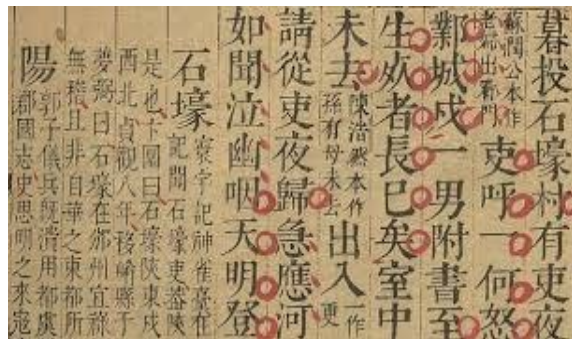 暮投石壕村有吏夜
蘇閏公本作
老婦出看門
吏呼一何怒
鄴城戍一男附書至
生死者長已矣室中
未去
陳浩然本作
孫有母未去
出入
一作
更
請從吏夜歸急應河
如聞泣幽咽天明登
石壕
寰宇記神雀臺在
記聞石壕吏蓋陝
是也卞圜曰石壕陝東戍
酉北貞觀八年移崤縣于
夢弼曰石壕在邠州宜祿
無稽且非自華之東都所
陽
郭子儀兵既潰用都虞
郡國志史思明之來寇